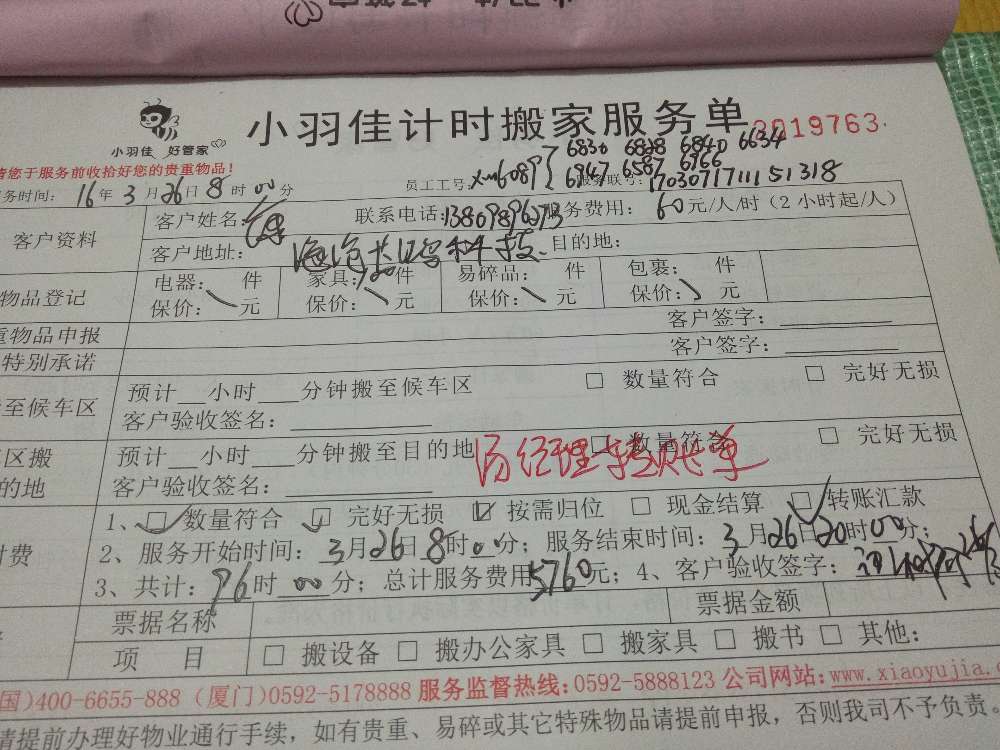 小羽佳 好管家
小羽佳计时搬家服务单
3019763
请您于服务前收拾好您的贵重物品!
务时间: 16年 3月 26日 8时 00分
员工工号: xm6089 6830 6828 6840 6634
6947 6587 6966
服务联号: 170307171115 1318
客户资料
客户姓名:
联系电话:
服务费用: 60元/人/时(2小时起/人)
客户地址:
科技
目的地:
物品登记
电器: 件
家具: 件
易碎品: 件
包裹: 件
保价: 元
保价: 元
保价: 元
保价: 元
重物品申报
客户签字:
特别承诺
客户签字:
至候车区
预计 小时 分钟搬至候车区
□ 数量符合
□ 完好无损
客户验收签名:
区搬
的地
预计 小时 分钟搬至目的地
汤经理转账单
□ 数量符合
□ 完好无损
客户验收签名:
付费
1、☑ 数量符合 ☑ 完好无损 ☑ 按需归位 □ 现金结算 ☑ 转账汇款
2、服务开始时间: 3月26日 8时00分; 服务结束时间: 3月26日20时00分;
3、共计: 96时 00分; 总计服务费用5760元; 4、客户验收签字:
票据名称
票据金额
项 目
□ 搬设备 □ 搬办公家具 □ 搬家具 □ 搬书 □ 其他:
国)400-6655-888 (厦门)0592-5178888 服务监督热线:0592-5888123 公司网站:www.xiaoyujia.c
请提前办理好物业通行手续，如有贵重、易碎或其它特殊物品请提前申报，否则我司不予负责。